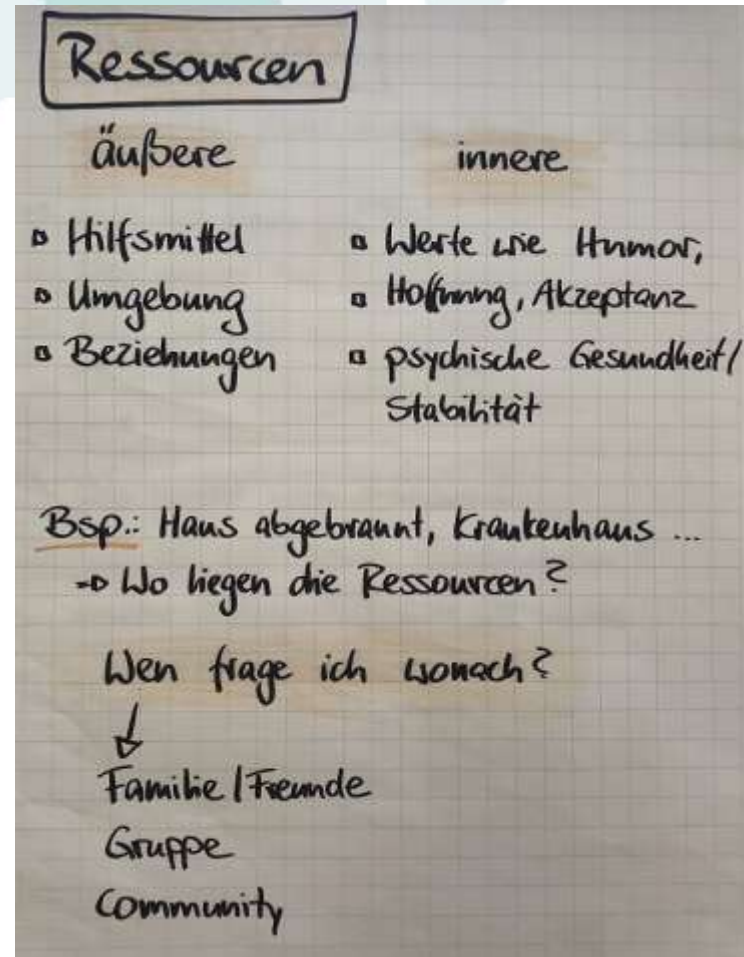 Ressourcen
äußere
innere
▫ Hilfsmittel
▫ Umgebung
▫ Beziehungen
▫ Werte wie Humor,
▫ Hoffnung, Akzeptanz
▫ psychische Gesundheit/
Stabilität
Bsp.: Haus abgebrannt, Krankenhaus ...
→ Wo liegen die Ressourcen?
Wen frage ich wonach?
↓
Familie / Freunde
Gruppe
Community